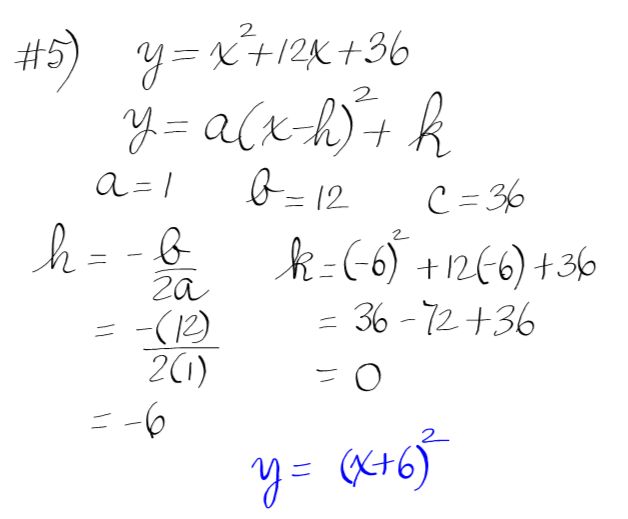 #5) y = x²+12x+36
y = a(x-h)²+ k
a = 1 b = 12 c = 36
h = -b/2a k = (-6)² + 12(-6) + 36
= -(12)/2(1) = 36 - 72 + 36
= -6 = 0
y = (x+6)²